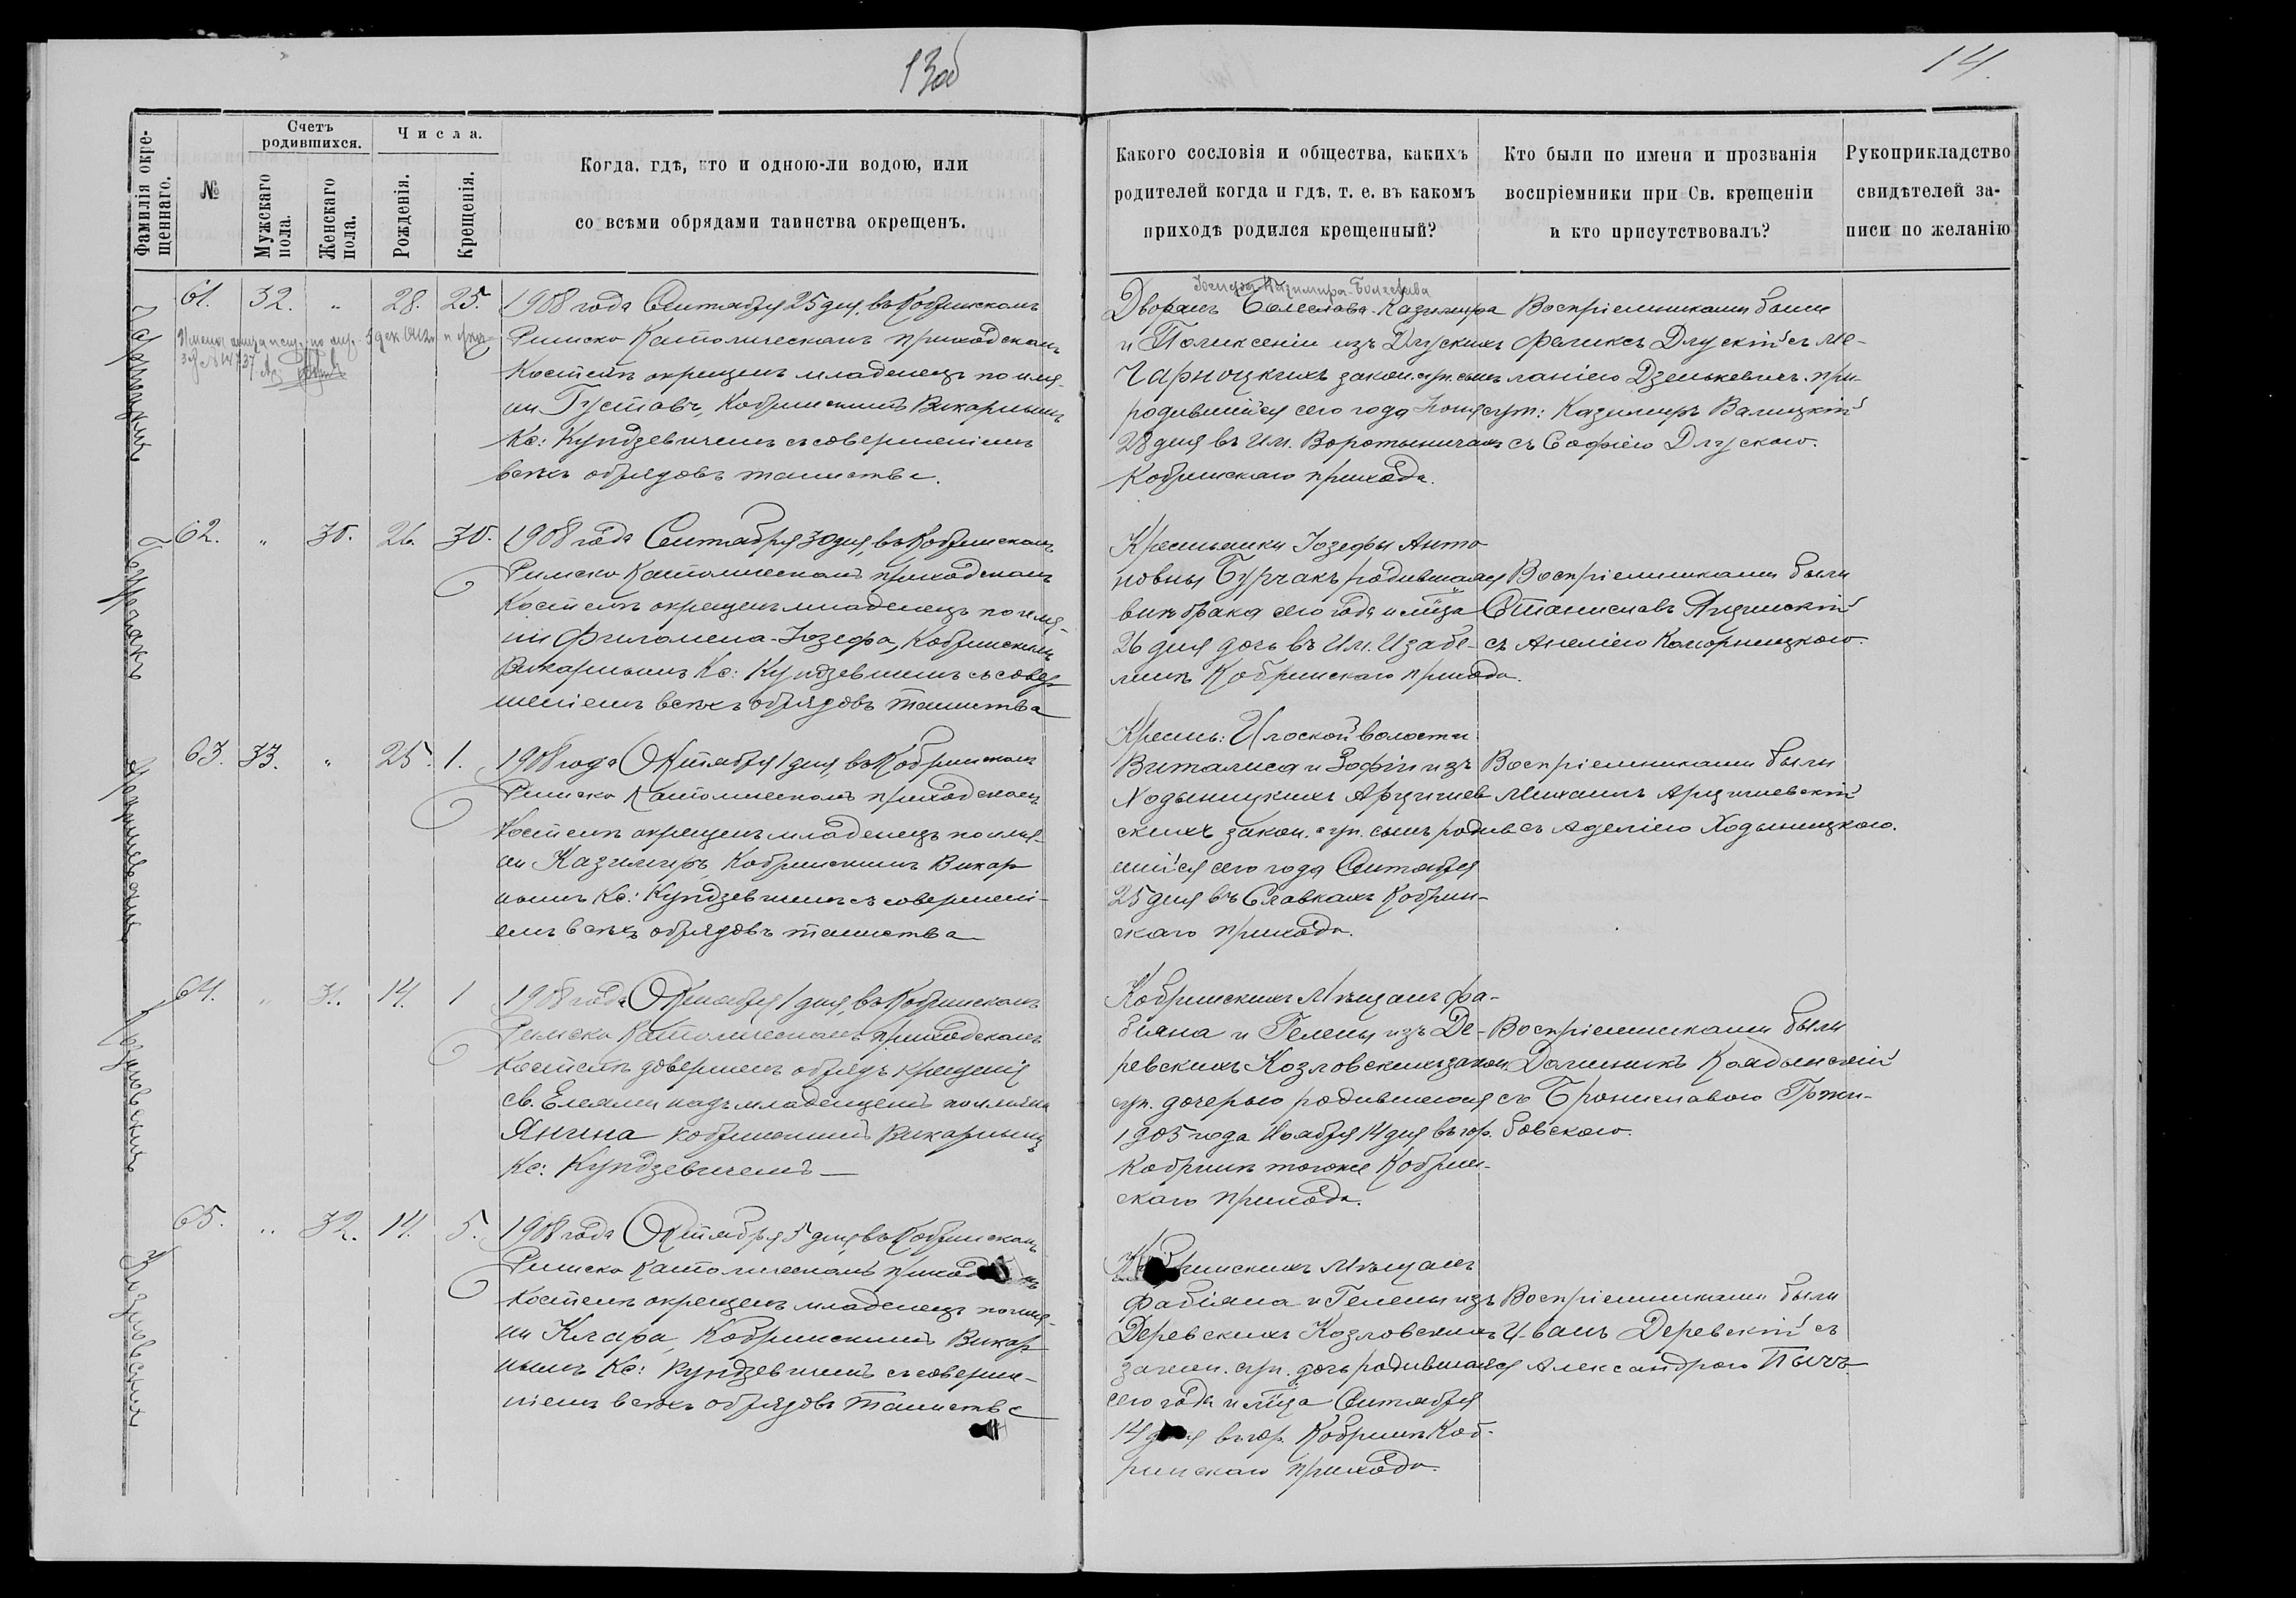 13об
14.
Фамилія окре-
щеннаго.
№
Счетъ
родившихся.
Мужскаго
пола.
Женскаго
пола.
Числа.
Рожденія.
Крещенія.
Когда, гдѣ, кто и одною-ли водою, или
со всѣми обрядами таинства окрещенъ.
Какого сословія и общества, какихъ
родителей когда и гдѣ, т. е. въ какомъ
приходѣ родился крещенный?
Кто были по имени и прозванія
воспріемники при Св. крещеніи
и кто присутствовалъ?
Рукоприкладство
свидѣтелей за-
писи по желанію
Чарноцкихъ
61. 32. „ 28. 25.
1908 года Сентября 25 дня, въ Кобринскомъ
Римско Католическомъ приходскомъ
Костелѣ окрещенъ младенецъ по име-
ни Густавъ, Кобринскимъ Викарнымъ
Кс: Кундзевичемъ съ совершеніемъ
всѣхъ обрядовъ таинства.
Казимира-Болеслава
Дворянъ Болеслава-Казимира
и Поликсеніи изъ Длускихъ
Чарноцкихъ закон. суп. сынъ
родившійся сего года Іюня
28 дня въ Им. Воротыничахъ
Кобринскаго прихода.
Воспріемниками были
Феликсъ Длускій съ Ме-
ланіею Дзенькевичъ. при-
сут: Казимиръ Валицкій
съ Софіею Длускою.
Бурчакъ
62. „ 30. 26. 30.
1908 года Сентября 30 дня, въ Кобринскомъ
Римско Католическомъ приходскомъ
Костелѣ окрещенъ младенецъ по име-
ни Филомена-Іозефа, Кобринскимъ
Викарнымъ Кс: Кундзевичемъ съ совер-
шеніемъ всѣхъ обрядовъ таинства
Крестьянки Іозефы Анто
новны Бурчакъ родившаяся
внѣ брака сего года и м-ца
26 дня дочь въ Им. Изабе-
линѣ Кобринскаго прихода.
Воспріемниками были
Станиславъ
съ Анеліею Каморницкою.
63. 33. „ 25. 1.
1908 года Октября 1 дня, въ Кобринскомъ
Римско Католическомъ приходскомъ
Костелѣ окрещенъ младенецъ по име-
ни Казимиръ, Кобринскимъ Викар
нымъ Кс: Кундзевичемъ съ совершені-
емъ всѣхъ обрядовъ таинства
Крест: Илоской волости
Виталиса и Зофіи изъ
Ходыницкихъ Арцишев
скихъ закон. суп. сынъ родив
шійся сего года Сентября
25 дня въ Славкахъ Кобрин-
скаго прихода.
Воспріемниками были
Михаилъ Арцишевскій
съ Аделіею Ходыницкою.
Козловскихъ
64. „ 31. 14. 1
1908 года Октября 1 дня, въ Кобринскомъ
Римско Католическомъ приходскомъ
Костелѣ довершенъ обрядъ крещенія
св. Елеями надъ младенцемъ по имени
Янина Кобринскимъ Викарнымъ
Кс: Кундзевичемъ
Кобринскихъ Мѣщанъ Фа-
біяна и Гелены изъ Де-
ревскихъ Козловскихъ закон
суп. дочерью родившеюся
1905 года Ноября 14 дня въ гор.
Кобринѣ тогоже Кобрин-
скаго прихода.
Воспріемниками были
Доминикъ
съ Брониславою Гржи-
бовскою.
Козловскихъ
65. „ 32. 14. 5.
1908 года Октября 5 дня, въ Кобринскомъ
Римско Католическомъ
Костелѣ окрещенъ младенецъ по име-
ни Клара, Кобринскимъ Викар
нымъ Кс: Кундзевичемъ съ соверше-
ніемъ всѣхъ обрядовъ таинства
Кобринскихъ Мѣщанъ
Фабіяна и Гелены изъ
Деревскихъ Козловскихъ
закон. суп. дочь родившаяся
сего года и м-ца Сентября
14 дня въ гор. Кобринѣ Коб-
ринскаго прихода.
Воспріемниками были
Иванъ Деревскій съ
Александрою Пычъ